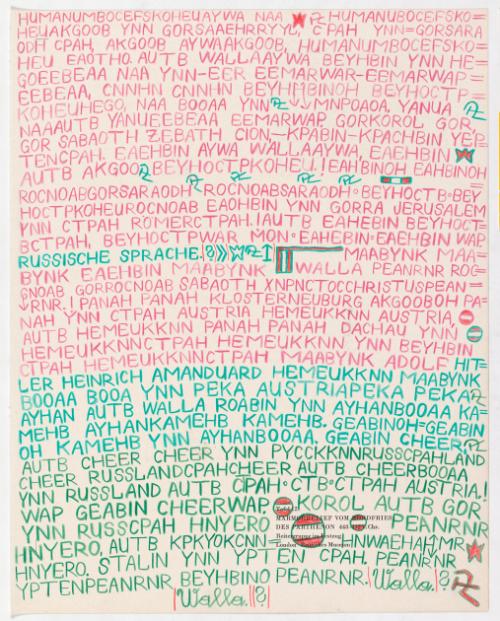 HUMANUMBOCEFSKOHEUAYWA NAA HUMANUBOCEFSKO=
HEUAKGOOB YNN GORSAAEHRRYYL CPAH YNN=GORSARA
ODH CPAH, AKGOOB AYWAAKGOOB, HUMANUMBOCEFSKO=
HEU EAOTHO. AUTB WALLAAYWA BEYHBIN YNN HE=
GOEEBEAA NAA YNN-EER EEMARWAR-EEMARWAP =
EEBEAA, CNNHN CNNHN BEYHMBINOH BEYHOCTP=
KOHEUHEGO, NAA BOOAA YNN MNPOAOA. YANUA
NAAAUTB YANUEEBEAA EEMARWAP, GORKOROL GOB,
GOR SABAOTH ZEBATH CION-KPABIN-KPACHBIN YEP=
TENCPAH. EAEHBIN AYWA WALLAAYWA, EAEHBIN
AUTB AKGOO BEYHOCTPKOHEU.! EAHBINOH EAHBINOH
ROCNOABGORSARAODH ROCNOABSARAODH BEYHOCTB-BEY
HOCTPKOHEUROCNOAB EAOHBIN YNN GORRA JERUSALEM
YNN CTPAH RÖMERCTPAH. !AUTB EAHEBIN BEYHOCT=
BCTPAH, BEYHOCTPWAR MON EAHEBIN EAEHBIN WAP
RUSSISCHE SPRACHE.? MAABYNK MAA=
BYNK EAEHBIN MAABYNK WALLA PEANRNR ROC=
GNOAB GORROCNOAB SABAOTH XNPNCTOCCHRISTUSPEAN=
RNR.! PANAH PANAH KLOSTERNEUBURG AKGOOBOH PA=
NAH YNN CTPAH AUSTRIA HEMEUKKNN AUSTRIA,
AUTB HEMEUKKNN PANAH PANAH DACHAU YNN
HEMEUKKNNCTPAH HEMEUKKNN YNN BEYHBIN
CTPAH HEMEUKKNNCTPAH MAABYNK ADOLF HIT=
LER HEINRICH AMANDUARD HEMEUKKNN MAABYNK
BOOAA BOOA YNN PEKA AUSTRIAPEKA PEKA
AYHAN AUTB WALLA ROABIN YNN AYHANBOOAA KA=
MEHB AYHANKAMEHB KAMEHB. GEABINOH=GEABIN
OH KAMEHB YNN AYHANBOOAA. GEABIN CHEER,
AUTB CHEER CHEER YNN PYCCKKNNRUSSCPAHLAND
CHEER RUSSLANDCPAHCHEER AUTB CHEERBOOAA
YNN RUSSLAND AUTB CPAH CTB CTPAH AUSTRIA!
WAP GEABIN CHEERWAP KOROL AUTB GOR
YNN RUSSCPAH HNYERO PEANRNR
HNYERO, AUTB KPKYOKCNN= HNWAEHAHMR
HNYERO, STALIN YNN YPTEN CPAH. PEANRNR
YPTENPEANRNR BEYHBINO PEANRNR. Walla.?
Walla.!?